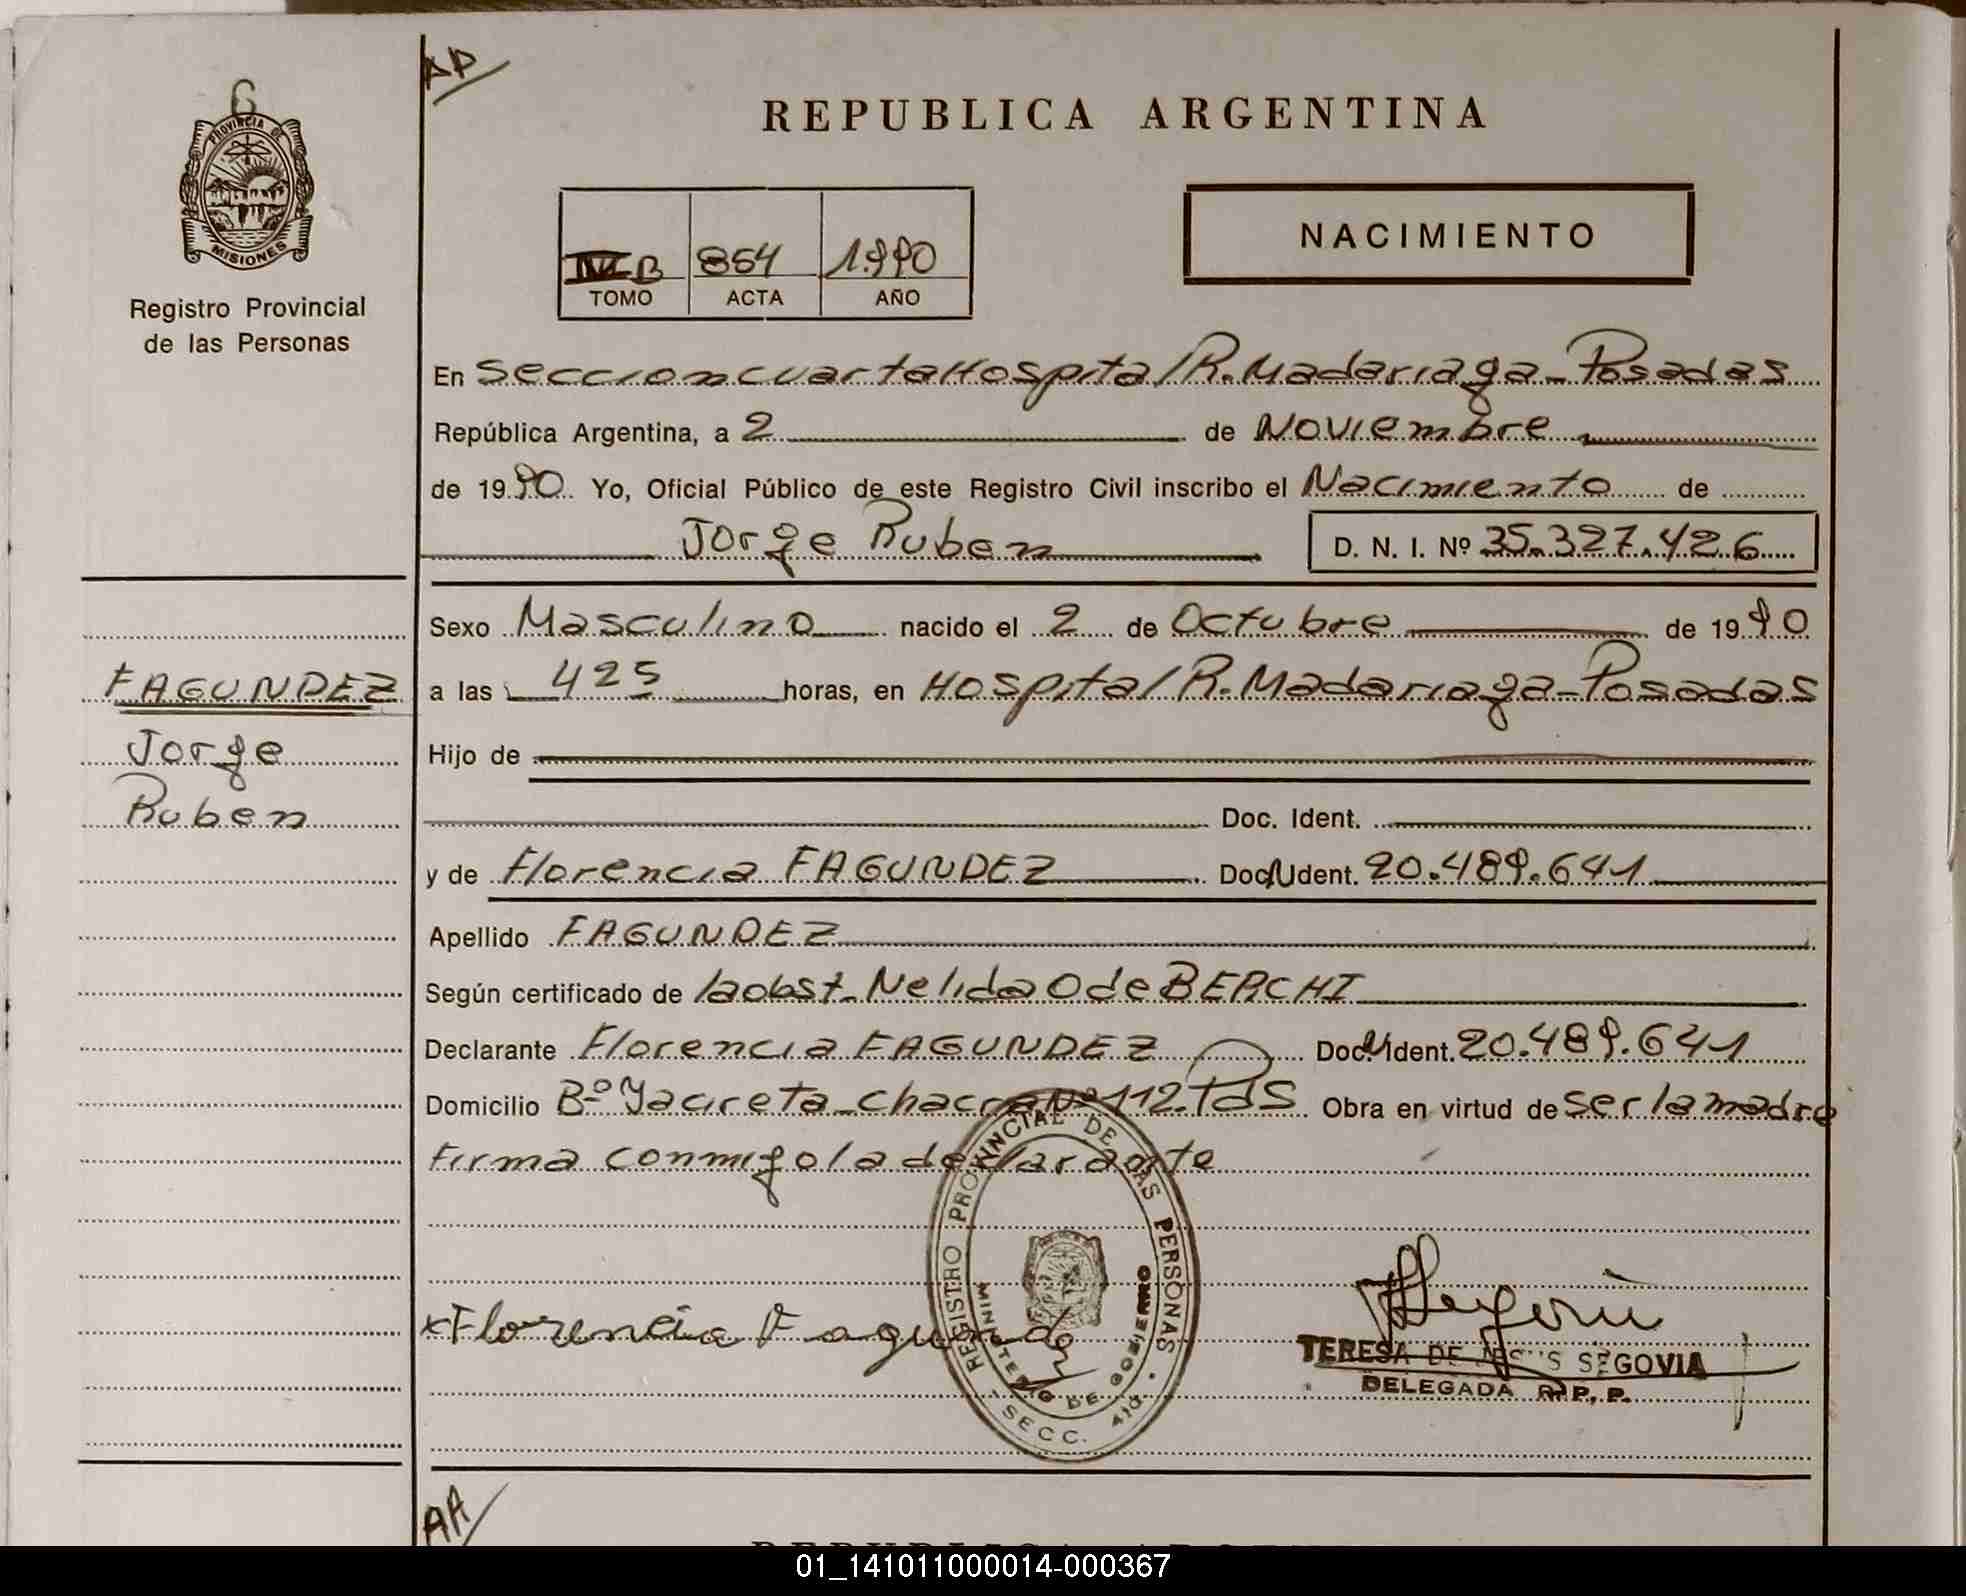 AP
REPUBLICA ARGENTINA
PROVINCIA DE
MISIONES
Registro Provincial
de las Personas
B 854 1.990
TOMO ACTA AÑO
NACIMIENTO
En Seccion cuarta Hospital R. Madariaga - Posadas
República Argentina, a 2 de Noviembre
de 1990 Yo, Oficial Público de este Registro Civil inscribo el Nacimiento de
Jorge Ruben D. N. I. Nº 35.327.426
Sexo Masculino nacido el 2 de Octubre de 1990
FAGUNDEZ
Jorge
Ruben
a las 425 horas, en Hospital R. Madariaga - Posadas
Hijo de
Doc. Ident.
y de Florencia FAGUNDEZ Doc. Ident. 20.489.641
Apellido FAGUNDEZ
Según certificado de la obst. Nelida O de BERCHI
Declarante Florencia FAGUNDEZ Doc. Ident. 20.489.641
Domicilio Bº Yacireta - chacra Nº 112. Pdas Obra en virtud de ser la madre
Firma conmigo la declarante
REGISTRO PROVINCIAL DE LAS PERSONAS
MINISTERIO DE GOBIERNO
SECC. 4ta.
x Florencia Fagundez
TERESA DE JESUS SEGOVIA
DELEGADA R. P. P.
AA
REPUBLICA ARGENTINA
01_141011000014-000367